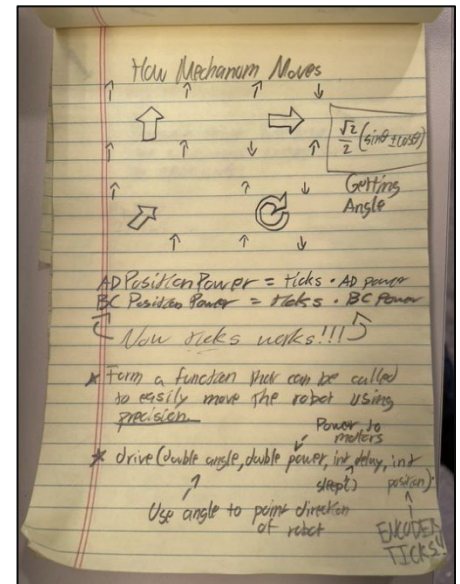 How Mechanum Moves
√2/2 (sinθ ± cosθ)
Getting
Angle
AD Position Power = ticks · AD power
BC Position Power = ticks · BC Power
Now ticks works!!!
* Form a function that can be called
to easily move the robot using
precision
Power to
motors
* drive(double angle, double power, int delay, int
position);
sleep()
Use angle to point direction
of robot
ENCODER
TICKS!!